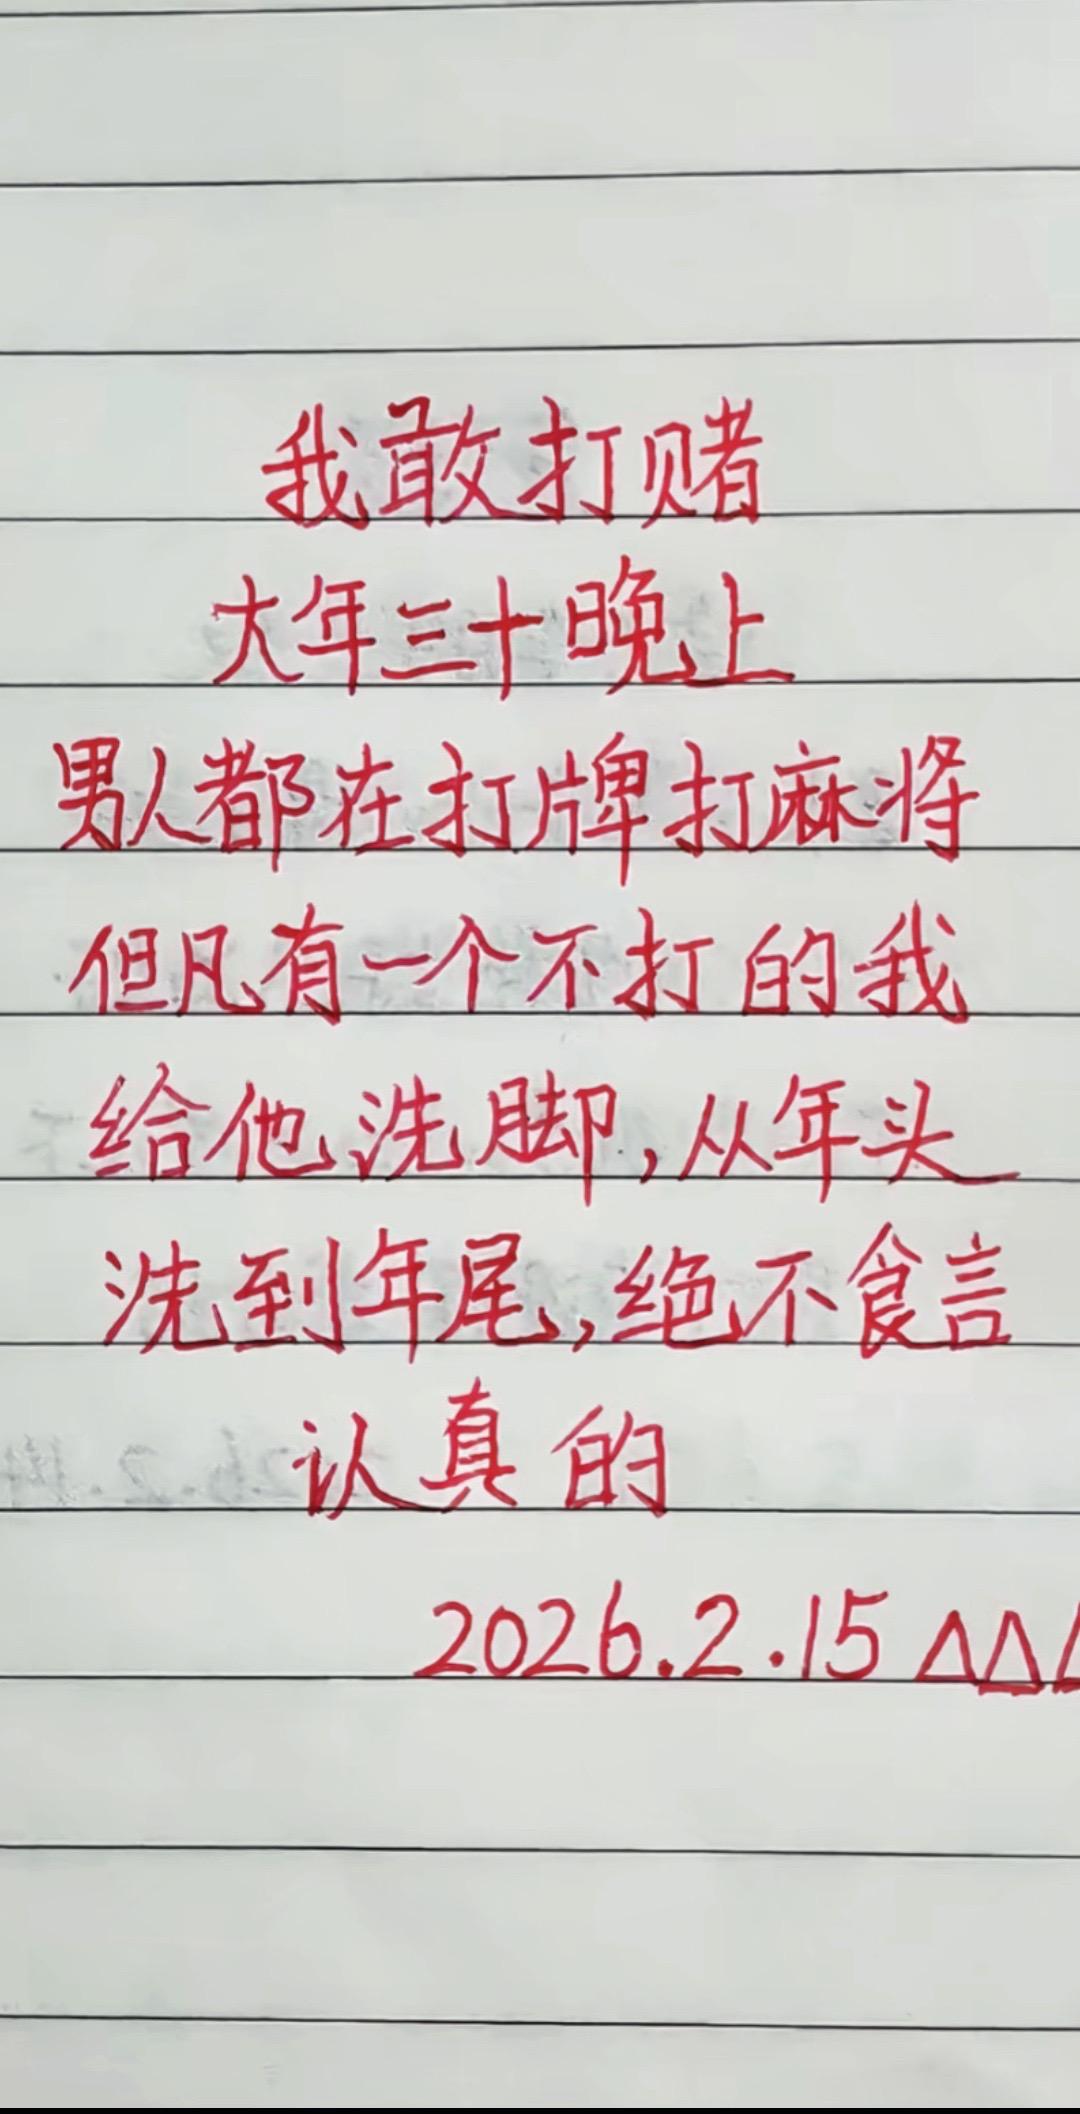 我敢打赌
大年三十晚上
男人都在打牌打麻将
但凡有一个不打的我
给他洗脚,从年头
洗到年尾,绝不食言
认真的
2026.2.15 △△△